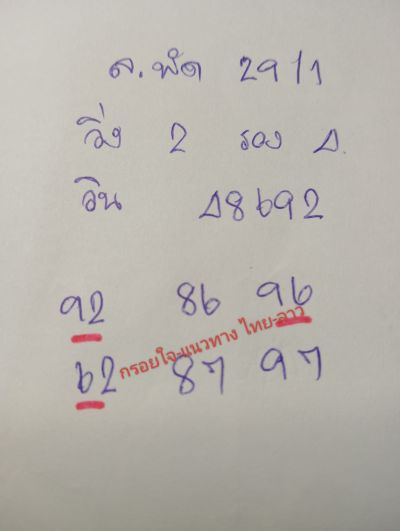 ล.พัด 29/1
วิ่ง 2 รอง 1.
วิน 18692
92 86 96
กรอยใจ-แนวทาง ไทย-ลาว
62 87 97